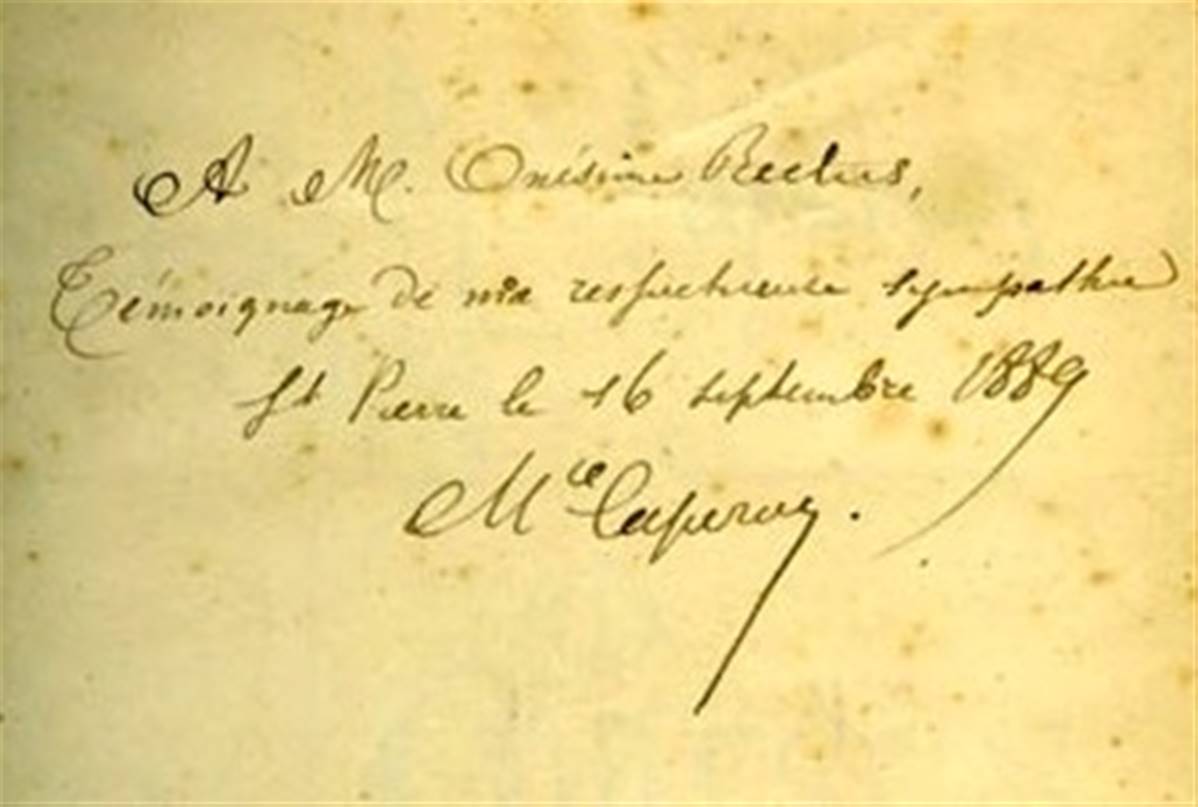 A M. Onésime Reclus,
Témoignage de ma respectueuse sympathie
St Pierre le 16 septembre 1889
Mce Caperon.